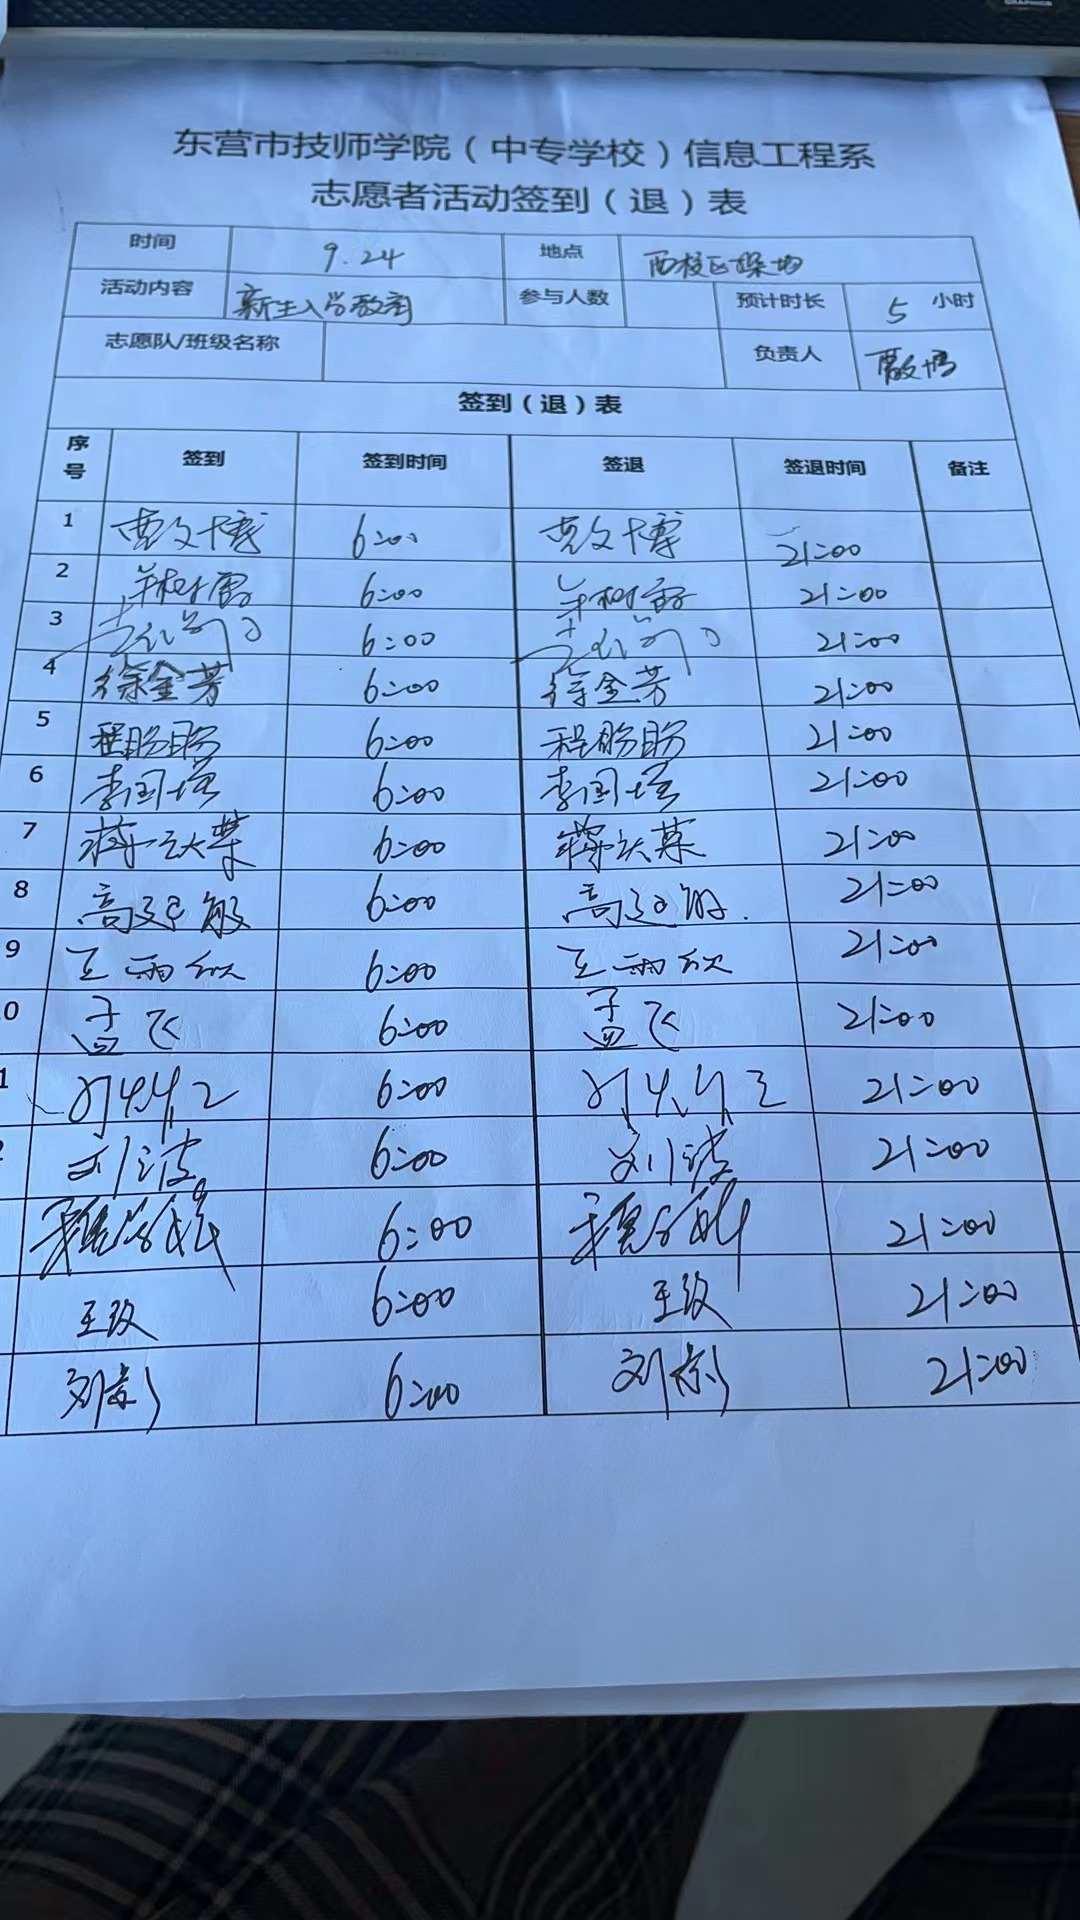 GRAPHICS
东营市技师学院（中专学校）信息工程系
志愿者活动签到（退）表
时间 9.24 地点 西校区操场
活动内容 新生入学教育 参与人数 预计时长 5 小时
志愿队/班级名称 负责人
签到（退）表
序号 签到 签到时间 签退 签退时间 备注
1 贾文博 6:00 贾文博 21:00
2 6:00 21:00
3 6:00 21:00
4 徐金芳 6:00 徐金芳 21:00
5 程盼盼 6:00 程盼盼 21:00
6 李国瑞 6:00 李国瑞 21:00
7 6:00 21:00
8 高延敏 6:00 高延敏 21:00
9 王雨欣 6:00 王雨欣 21:00
0 孟飞 6:00 孟飞 21:00
1 6:00 21:00
刘波 6:00 刘波 21:00
6:00 21:00
王玫 6:00 王玫 21:00
刘彰 6:00 刘彰 21:00